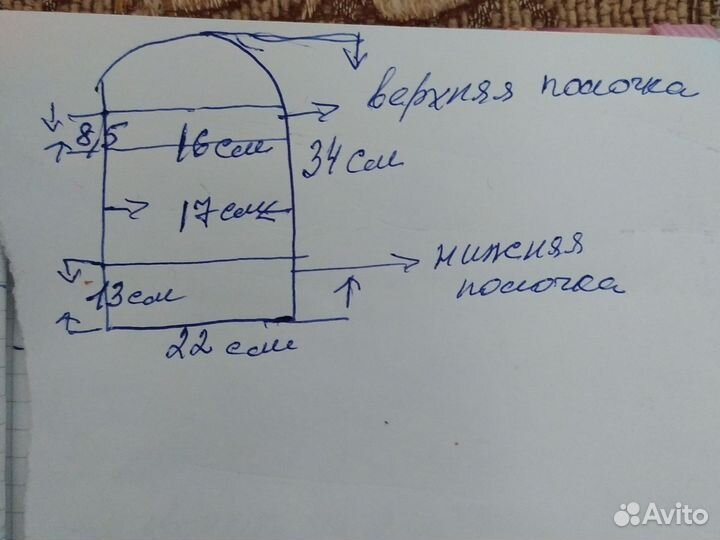 верхняя полочка
8,5
16 см
34 см
17 см
нижняя
полочка
13 см
22 см
Avito